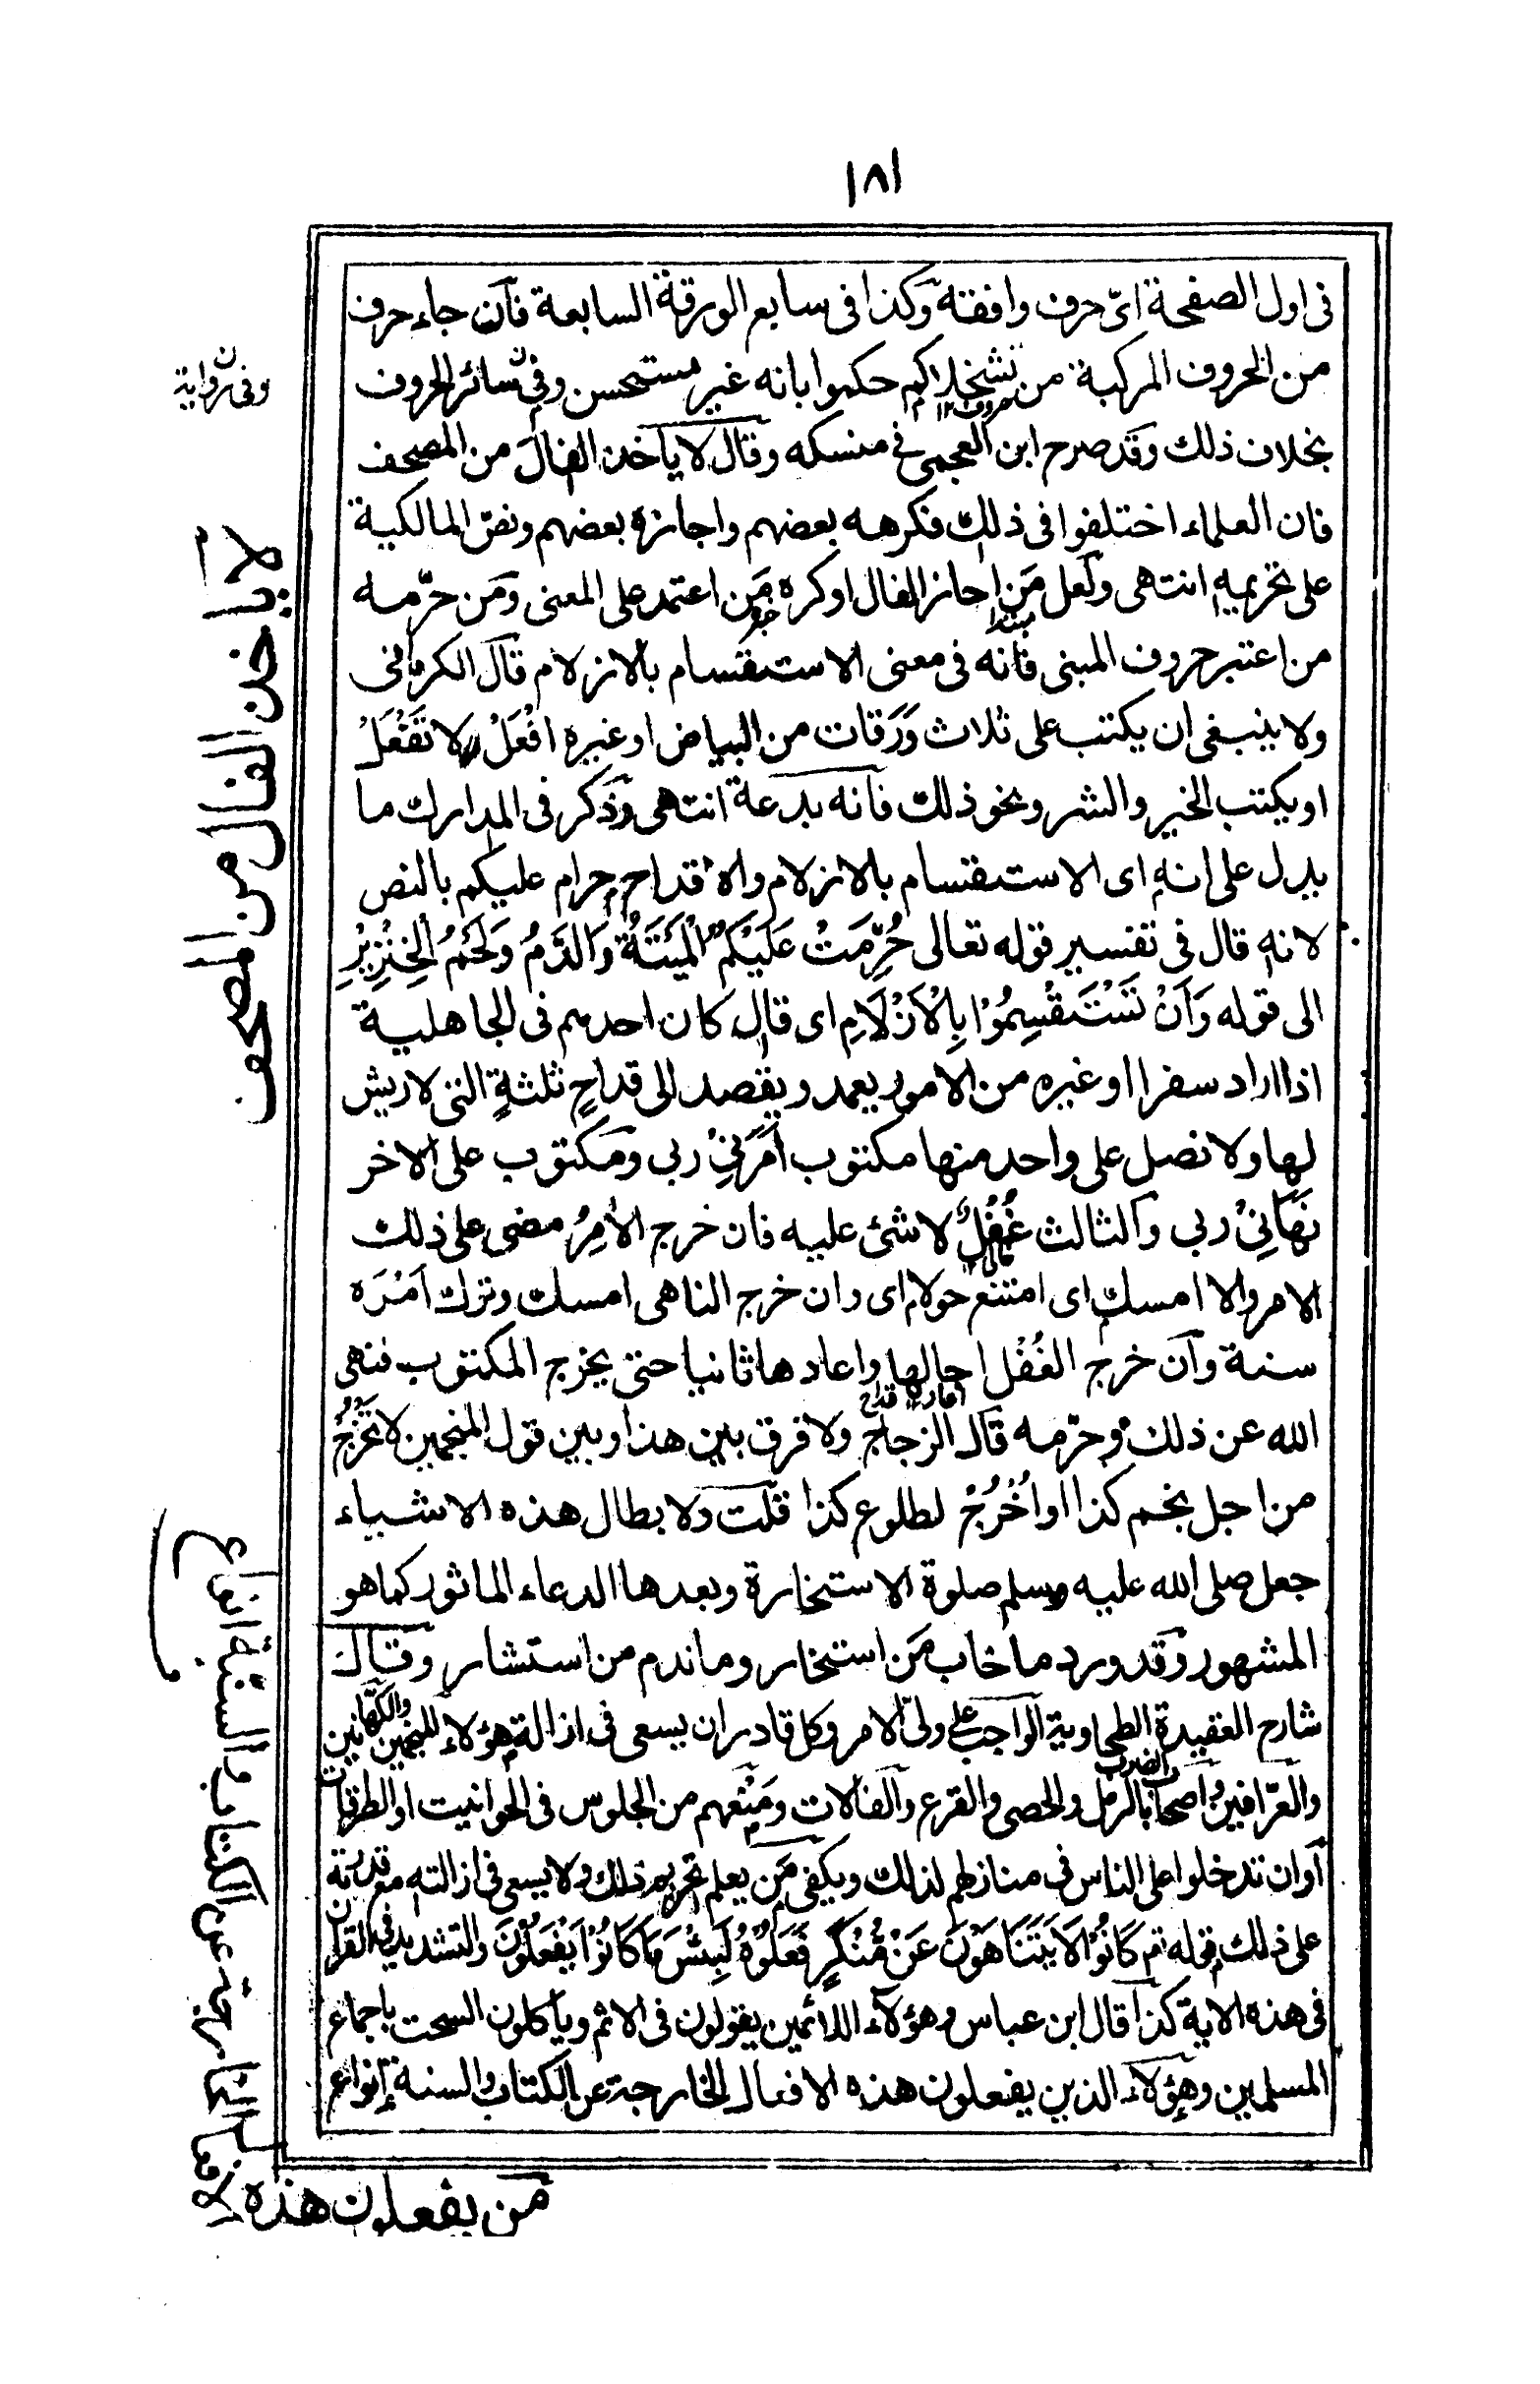 ١٨١
فى اول الصفحة اىّ حرف وافقه وكذا فى سابع الورقة السابعة فان جاء حرف
من الحروف المركبة من تشخلاكم حكموا بانه غير مستحسن وفى سائر الحروف
بخلاف ذلك وقد صرح ابن العجمى فى منسكه وقال لا يأخذ الفال من المصحف
فان العلماء اختلفوا فى ذلك فكرهه بعضهم واجازه بعضهم ونص المالكية
على تحريمه انتهى ولعل مَن اجاز الفال او كره مَن اعتمد على المعنى ومَن حرّمه
من اعتبر حروف المبنى فانه فى معنى الاستقسام بالازلام قال الكرمانى
ولا ينبغى ان يكتب على ثلاث وَرَقات من البياض او غيره افْعَلْ ولا تَفْعَلْ
او يكتب الخير والشر ونحو ذلك فانه بدعة انتهى وذكر فى المدارك ما
يدل على انه اى الاستقسام بالازلام والاقداح حرام عليكم بالنص
لانه قال فى تفسير قوله تعالى حُرِّمَتْ عَلَيْكُمُ الْمَيْتَةُ وَالدَّمُ وَلَحْمُ الْخِنْزِيْرِ
الى قوله وَاَنْ تَسْتَقْسِمُوْا بِالْاَزْلَامِ اى قال كان احدهم فى الجاهلية
اذا اراد سفرا او غيره من الامور يعمد ويقصد الى قداحٍ ثلثةٍ التى لا ريش
لها ولا نصل على واحد منها مكتوب اَمَرَنِىْ ربى ومكتوب على الاخر
نَهَانِىْ ربى والثالث غُفْلٌ لا شئ عليه فان خرج الاٰمِرُ مضى على ذلك
الامر والا امسك اى امتنع حولا اى وان خرج الناهى امسك وترك اَمْرَه
سنة وان خرج الغُفْل اجالها واعادها ثانيا حتى يخرج المكتوب فنهى
الله عن ذلك وحرّمه قال الزجاج ولا فرق بين هذا وبين قول المنجمين لا تَخْرُجْ
من اجل نجم كذا او اُخْرُجْ لطلوع كذا قلت ولابطال هذه الاشياء
جعل صلى الله عليه وسلم صلوة الاستخارة وبعدها الدعاء الماثور كما هو
المشهور وقد ورد ما خاب مَن استخار وما ندم من استشار وقال
شارح العقيدة الطحاوية الواجب على ولى الامر وكل قادر ان يسعى فى ازالة هؤلاء المنجمين والكهّانين
والعرّافين واصحاب الضرب بالرمل والحصى والقرع والفالات ومَنْعهم من الجلوس فى الحوانيت او الطرقات
او ان تدخلوا على الناس فى منازلهم لذلك ويكفى مَن يعلم تحريم ذلك ولا يسعى فى ازالته مع قدرته
على ذلك قوله تع كَانُوْا لَا يَتَنَاهَوْنَ عَنْ مُّنْكَرٍ فَعَلُوْهُ لَبِئْسَ مَا كَانُوْا يَفْعَلُوْنَ والتشديد فى القرآن
فى هذه الاية كذا قال ابن عباس وهؤلاء اللائمين يقولون فى الاثم ويأكلون السحت باجماع
المسلمين وهؤلاء الذين يفعلون هذه الافعال الخارجة عن الكتاب والسنة انواع
وفى رواية
لا يأخذ الفال من المصحف
مَن يفعلون هذه الافعال الخارجة عن الكتاب والسنة انواع